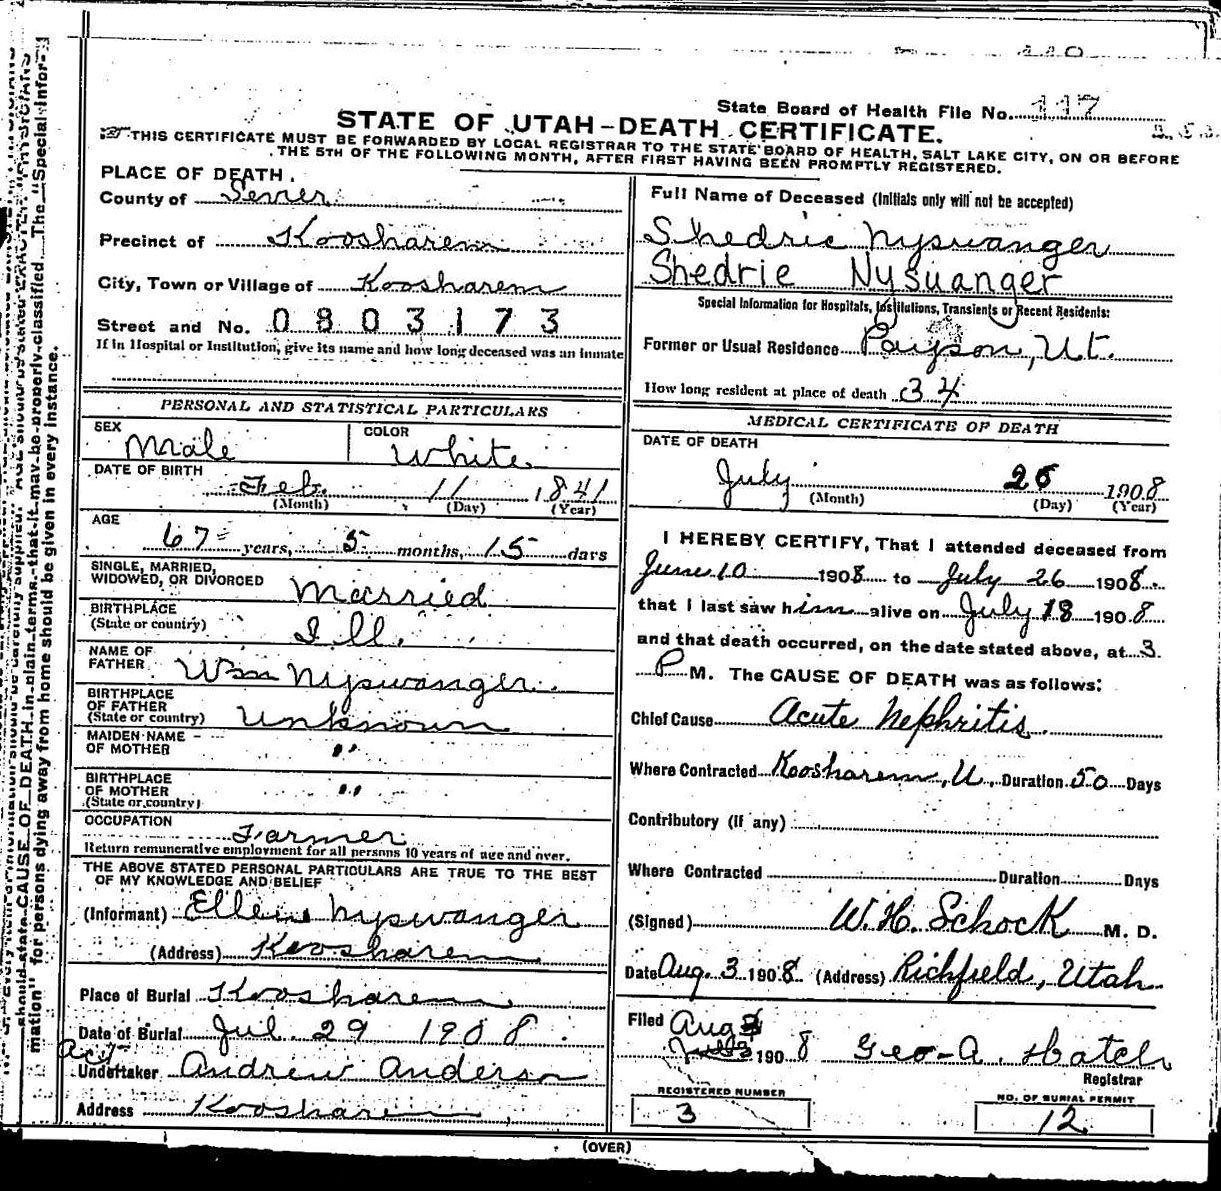 State Board of Health File No. 117
STATE OF UTAH-DEATH CERTIFICATE.
THIS CERTIFICATE MUST BE FORWARDED BY LOCAL REGISTRAR TO THE STATE BOARD OF HEALTH, SALT LAKE CITY, ON OR BEFORE
THE 5TH OF THE FOLLOWING MONTH, AFTER FIRST HAVING BEEN PROMPTLY REGISTERED.
PLACE OF DEATH.
County of Sevier
Precinct of Koosharem
City, Town or Village of Koosharem
Street and No. 0803173
If in Hospital or Institution, give its name and how long deceased was an inmate
PERSONAL AND STATISTICAL PARTICULARS
SEX Male COLOR White
DATE OF BIRTH Feb. 11 1841
(Month) (Day) (Year)
AGE 67 years, 5 months, 15 days
SINGLE, MARRIED,
WIDOWED, OR DIVORCED Married
BIRTHPLACE
(State or country) Ill.
NAME OF
FATHER Wm Nyswanger
BIRTHPLACE
OF FATHER
(State or country) Unknown
MAIDEN NAME
OF MOTHER "
BIRTHPLACE
OF MOTHER "
(State or country)
OCCUPATION Farmer
Return remunerative employment for all persons 10 years of age and over.
THE ABOVE STATED PERSONAL PARTICULARS ARE TRUE TO THE BEST
OF MY KNOWLEDGE AND BELIEF
(Informant) Ellen Nyswanger
(Address) Koosharem
Place of Burial Koosharem
Date of Burial Jul. 29 1908.
act
Undertaker Andrew Anderson
Address Koosharem
Full Name of Deceased (Initials only will not be accepted)
Shedric Nyswanger
Shedrie Nysuanger
Special Information for Hospitals, Institutions, Transients or Recent Residents:
Former or Usual Residence Payson, Ut.
How long resident at place of death 34
MEDICAL CERTIFICATE OF DEATH
DATE OF DEATH
July 26 1908
(Month) (Day) (Year)
I HEREBY CERTIFY, That I attended deceased from
June 10 1908 to July 26 1908.
that I last saw him alive on July 18 1908
and that death occurred, on the date stated above, at 3
P M. The CAUSE OF DEATH was as follows:
Chief Cause Acute Nephritis
Where Contracted Koosharem, U. Duration 50 Days
Contributory (if any)
Where Contracted Duration Days
(Signed) W. H. Schock M. D.
Date Aug. 3 1908 (Address) Richfield, Utah
Filed Aug 3
1908 Geo-A. Hatch
Registrar
REGISTERED NUMBER
3
NO. OF BURIAL PERMIT
12
(OVER)
should state CAUSE OF DEATH in plain terms, that it may be properly classified. The "Special Infor-
mation" for persons dying away from home should be given in every instance.